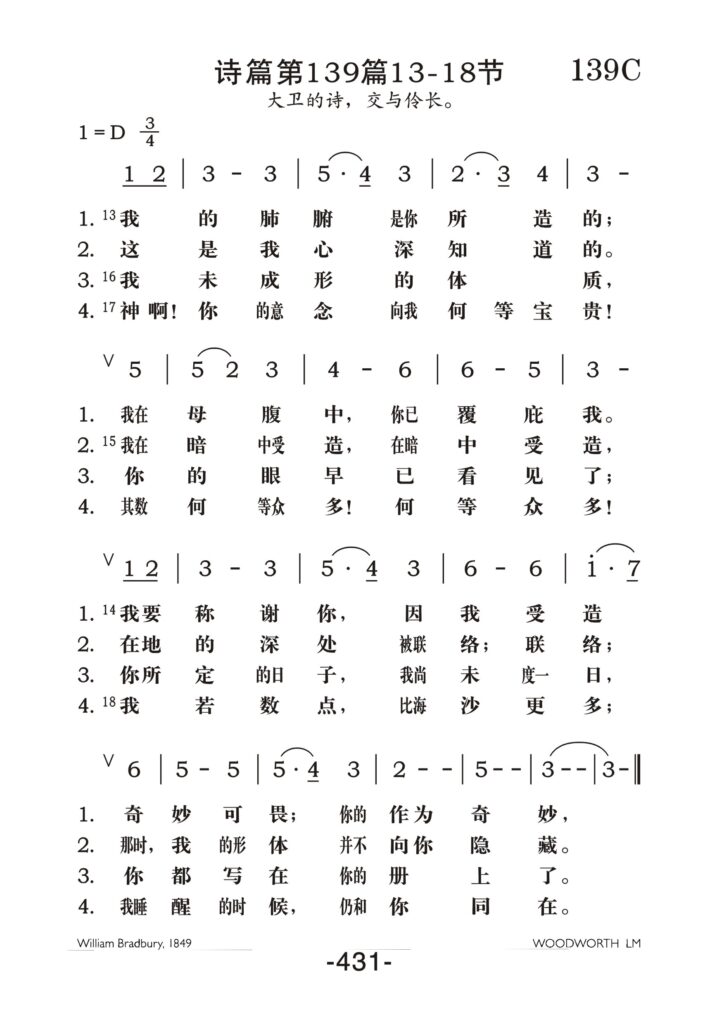 诗篇第139篇13-18节 139C
大卫的诗，交与伶长。
1 = D 3/4
1 2 | 3 - 3 | 5 · 4 3 | 2 · 3 4 | 3 -
1. 13我 的 肺 腑 是你 所 造 的；
2. 这 是 我 心 深 知 道 的。
3. 16我 未 成 形 的 体 质，
4. 17神 啊！ 你 的意 念 向我 何 等 宝 贵！
V 5 | 5 2 3 | 4 - 6 | 6 - 5 | 3 -
1. 我在 母 腹 中， 你已 覆 庇 我。
2. 15我在 暗 中受 造， 在暗 中 受 造，
3. 你 的 眼 早 已 看 见 了；
4. 其数 何 等众 多！ 何 等 众 多！
V 1 2 | 3 - 3 | 5 · 4 3 | 6 - 6 | i · 7
1. 14我要 称 谢 你， 因 我 受 造
2. 在地 的 深 处 被联 络； 联 络；
3. 你所 定 的日 子， 我尚 未 度一 日，
4. 18我 若 数 点， 比海 沙 更 多；
V 6 | 5 - 5 | 5 · 4 3 | 2 - - | 5 - - | 3 - - | 3 - ‖
1. 奇 妙 可 畏； 你的 作为 奇 妙，
2. 那时， 我 的形 体 并不 向你 隐 藏。
3. 你 都 写 在 你的 册 上 了。
4. 我睡 醒 的时 候， 仍和 你 同 在。
William Bradbury, 1849 WOODWORTH LM
-431-